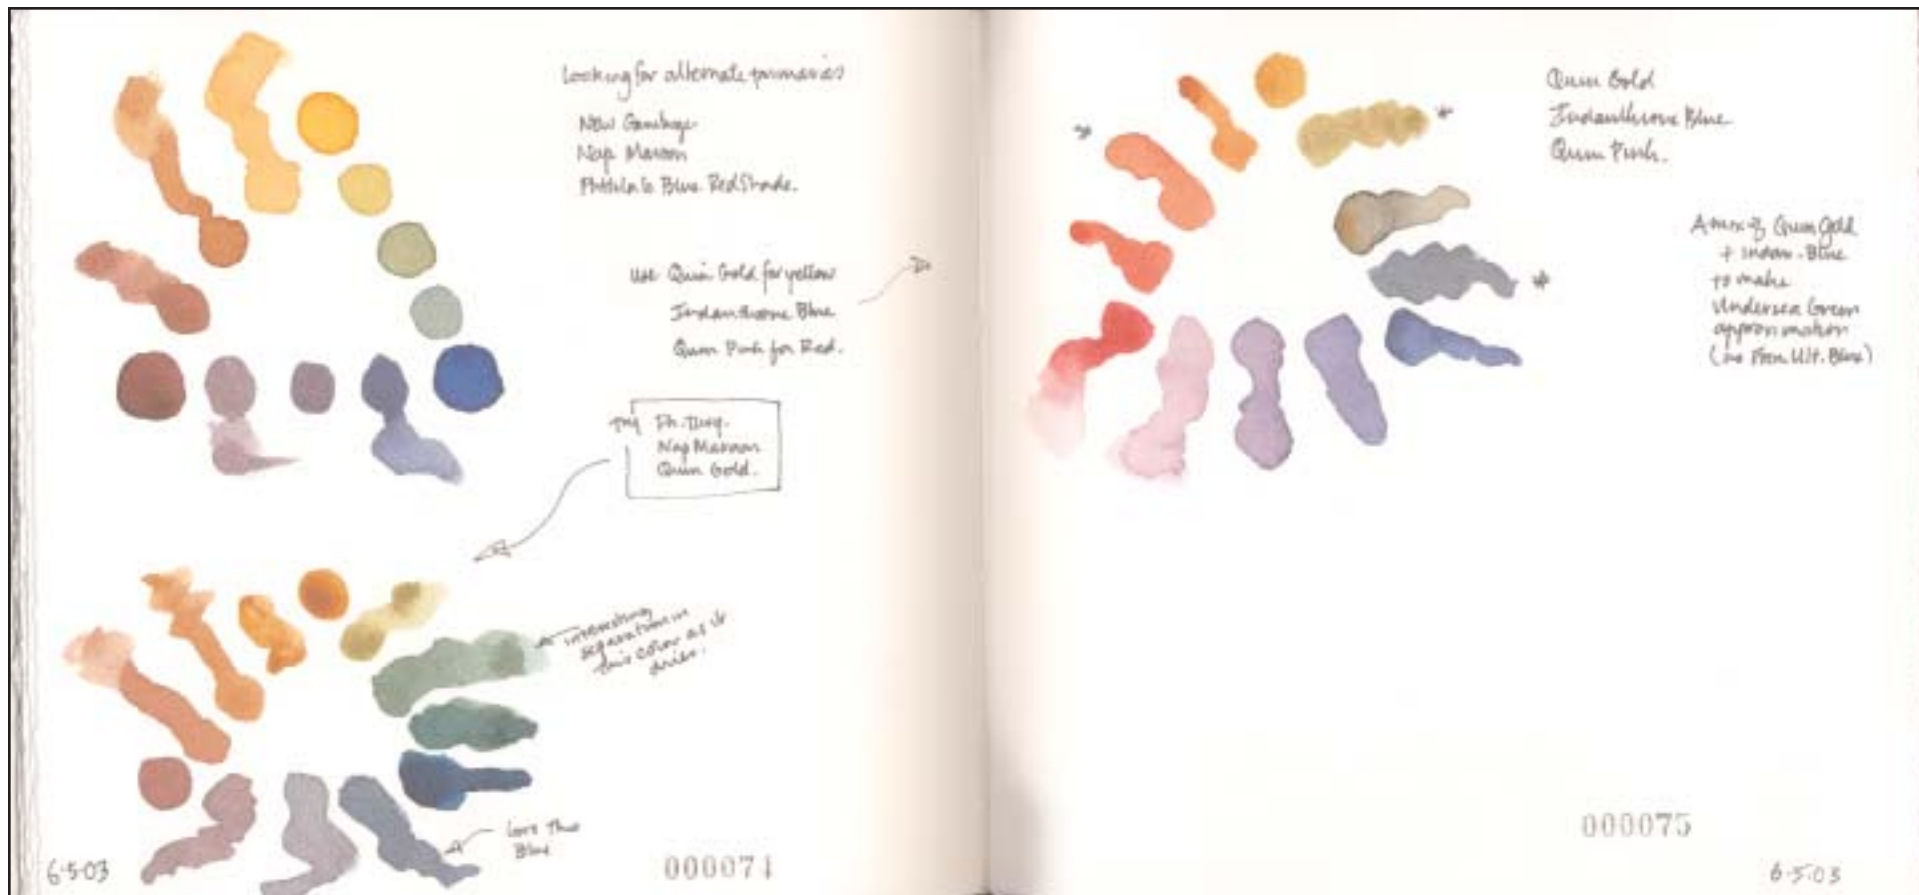 Looking for alternate primaries
New Gamboge
Nap Maroon
Phthalo Blue Red Shade.
Use Quin Gold for yellow
Indanthrone Blue
Quin Pink for Red.
Try Ph. Turq.
Nap Maroon
Quin Gold.
interesting
separation in
this color as it
dries.
Love this
Blue
6·5·03
000074
Quin Gold
Indanthrone Blue
Quin Pink.
A mix of Quin Gold
+ Indan. Blue
to make
Undersea Green
approximation
Ult. Blue)
000075
6·5·03